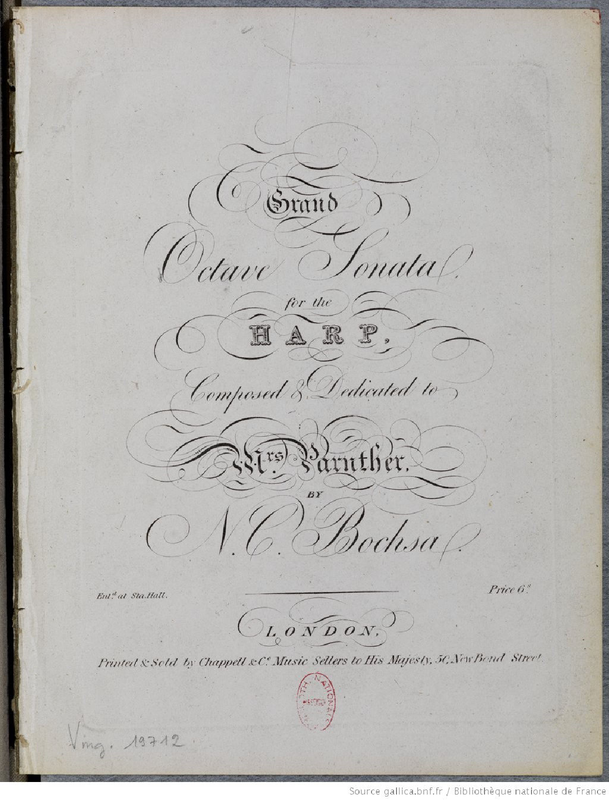 Grand
Octave Sonata
for the
HARP,
Composed & Dedicated to
Mrs. Parnther.
BY
N. C. Bochsa.
Entd. at Sta. Hall.
Price 6s.
LONDON,
Printed & Sold by Chappell & Co. Music Sellers to His Majesty, 50, New Bond Street.
Vmg. 19712.
Source gallica.bnf.fr / Bibliothèque nationale de France